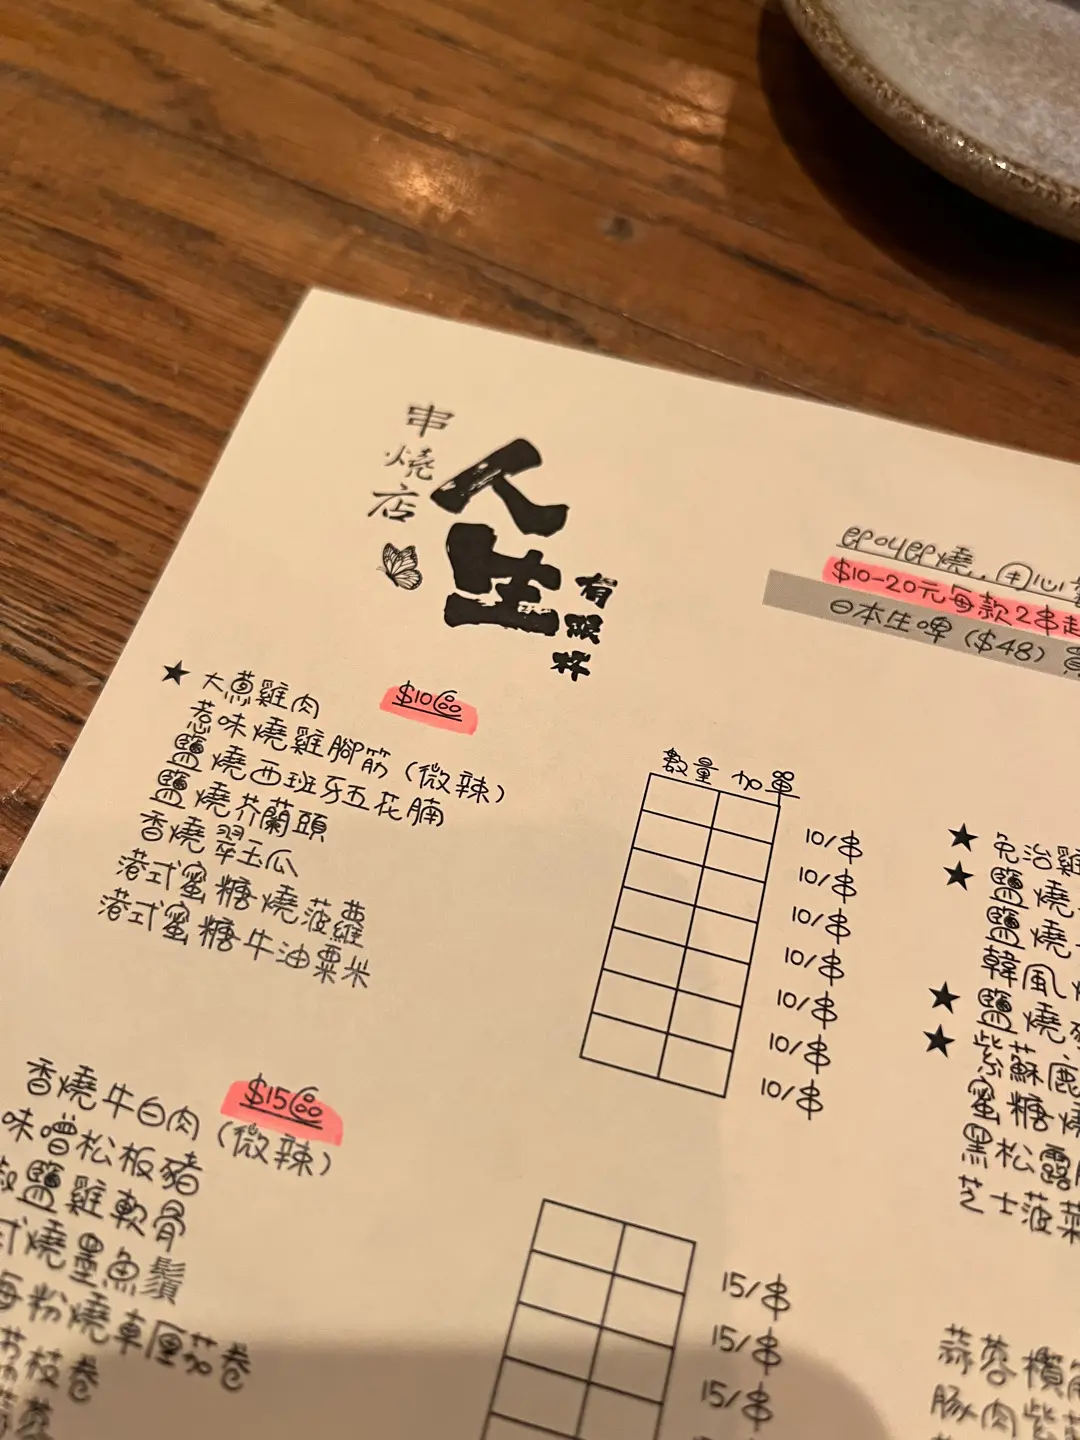 串燒店
人生
有限杯
epoyep燒..手心
$10-20元每款2串起
日本生啤 ($48)
$10區
★ 大蔥雞肉
惹味燒雞腳筋 (微辣)
鹽燒西班牙五花腩
鹽燒芥蘭頭
香燒翠玉瓜
港式蜜糖燒菠蘿
港式蜜糖牛油粟米
數量 加單
10/串
10/串
10/串
10/串
10/串
10/串
10/串
★ 免治雞
★ 鹽燒
鹽燒
韓風
★ 鹽燒
★ 紫蘇
蜜糖燒
黑松露
芝士菠菜
$15區
香燒牛白肉 (微辣)
味噌松板豬
鹽雞軟骨
式燒墨魚鬚
粉燒車厘茄卷
枝卷
15/串
15/串
15/串
蒜蓉欖
豚肉紫